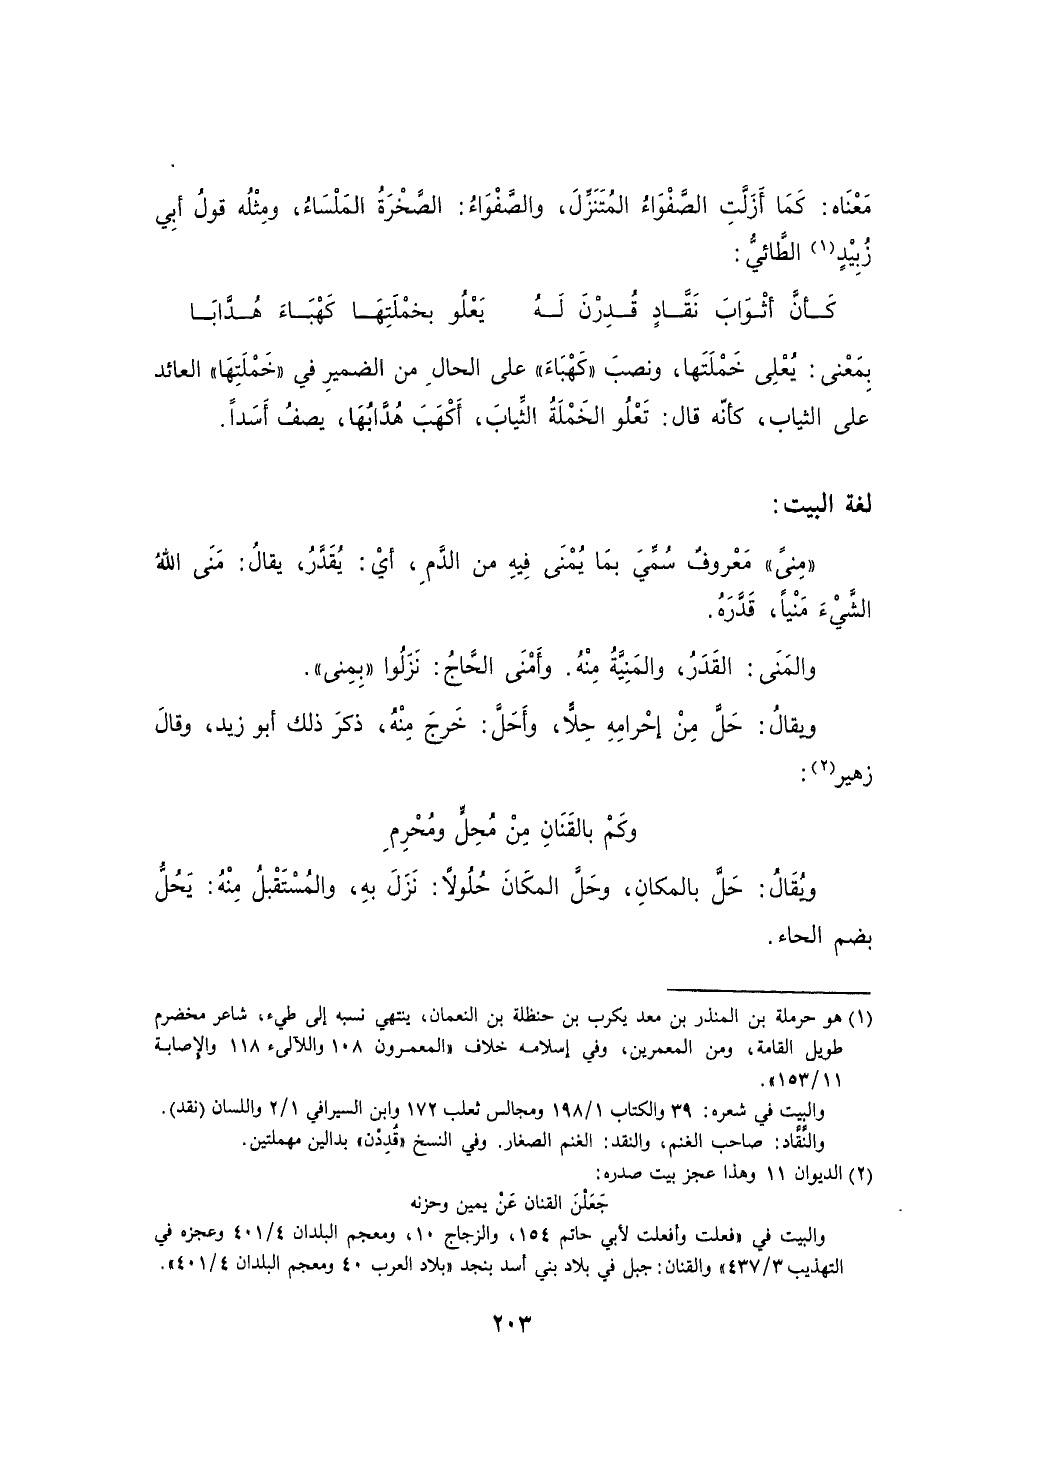 مَعْنَاه: كَمَا أَزَلَّتِ الصَّفْوَاءُ المُتَنَزِّلَ، والصَّفْوَاءُ: الصَّخْرَةُ المَلْسَاءُ، ومِثْلُه قولُ أبِي
زُبِيْدٍ(١) الطَّائيُّ:
كَــأنَّ أثْـوَابَ نَقَّـادٍ قُـدِرْنَ لَـهُ يَعْلُو بخمْلَتِهَـا كَهْبَـاءَ هُـدَّابَـا
بِمَعْنى: يُعْلِى خَمْلَتَها، ونصبَ «كَهْبَاءَ» على الحالِ من الضميرِ في «خَمْلَتِهَا» العائد
على الثياب، كأنّه قال: تَعْلُو الخَمْلَةُ الثِّيابَ، أَكْهَبَ هُدَّابُهَا، يصفُ أَسَداً.
لغة البيت:
«مِنىً» مَعْروفٌ سُمِّيَ بمَا يُمْنَى فِيهِ من الدَّمِ، أيْ: يُقَدَّرُ، يقالُ: مَنَى اللهُ
الشَّيْءَ مَنْياً، قَدَّرَهُ.
والمَنَى: القَدَرُ، والمَنِيَّةُ مِنْهُ. وأَمْنَى الحَّاجُ: نَزَلُوا «بِمِنى».
ويقالُ: حَلَّ مِنْ إحْرامِهِ حِلًّا، وأَحَلَّ: خَرجَ مِنْهُ، ذكرَ ذلك أبو زيد، وقالَ
زهير(٢):
وكَمْ بالقَنَانِ مِنْ مُحِلٍّ ومُحْرِمِ
ويُقَالُ: حَلَّ بالمكانِ، وحَلَّ المكَانَ حُلُولًا: نَزَلَ بهِ، والمُسْتَقْبلُ مِنْهُ: يَحُلُّ
بضم الحاء.
(١) هو حرملة بن المنذر بن معد يكرب بن حنظلة بن النعمان، ينتهي نسبه إلى طيء، شاعر مخضرم
طويل القامة، ومن المعمرين، وفي إسلامه خلاف «المعمرون ١٠٨ واللآلىء ١١٨ والإصابة
١٥٣/١١».
والبيت في شعره: ٣٩ والكتاب ١٩٨/١ ومجالس ثعلب ١٧٢ وابن السيرافي ٢/١ واللسان (نقد).
والنُّقَّاد: صاحب الغنم، والنقد: الغنم الصغار. وفي النسخ «قُدِدْن» بدالين مهملتين.
(٢) الديوان ١١ وهذا عجز بيت صدره:
جَعَلْنَ القنان عَنْ يمين وحزنه
والبيت في «فعلت وأفعلت لأبي حاتم ١٥٤، والزجاج ١٠، ومعجم البلدان ٤٠١/٤ وعجزه في
التهذيب ٤٣٧/٣» والقنان: جبل في بلاد بني أسد بنجد «بلاد العرب ٤٠ ومعجم البلدان ٤٠١/٤».
٢٠٣